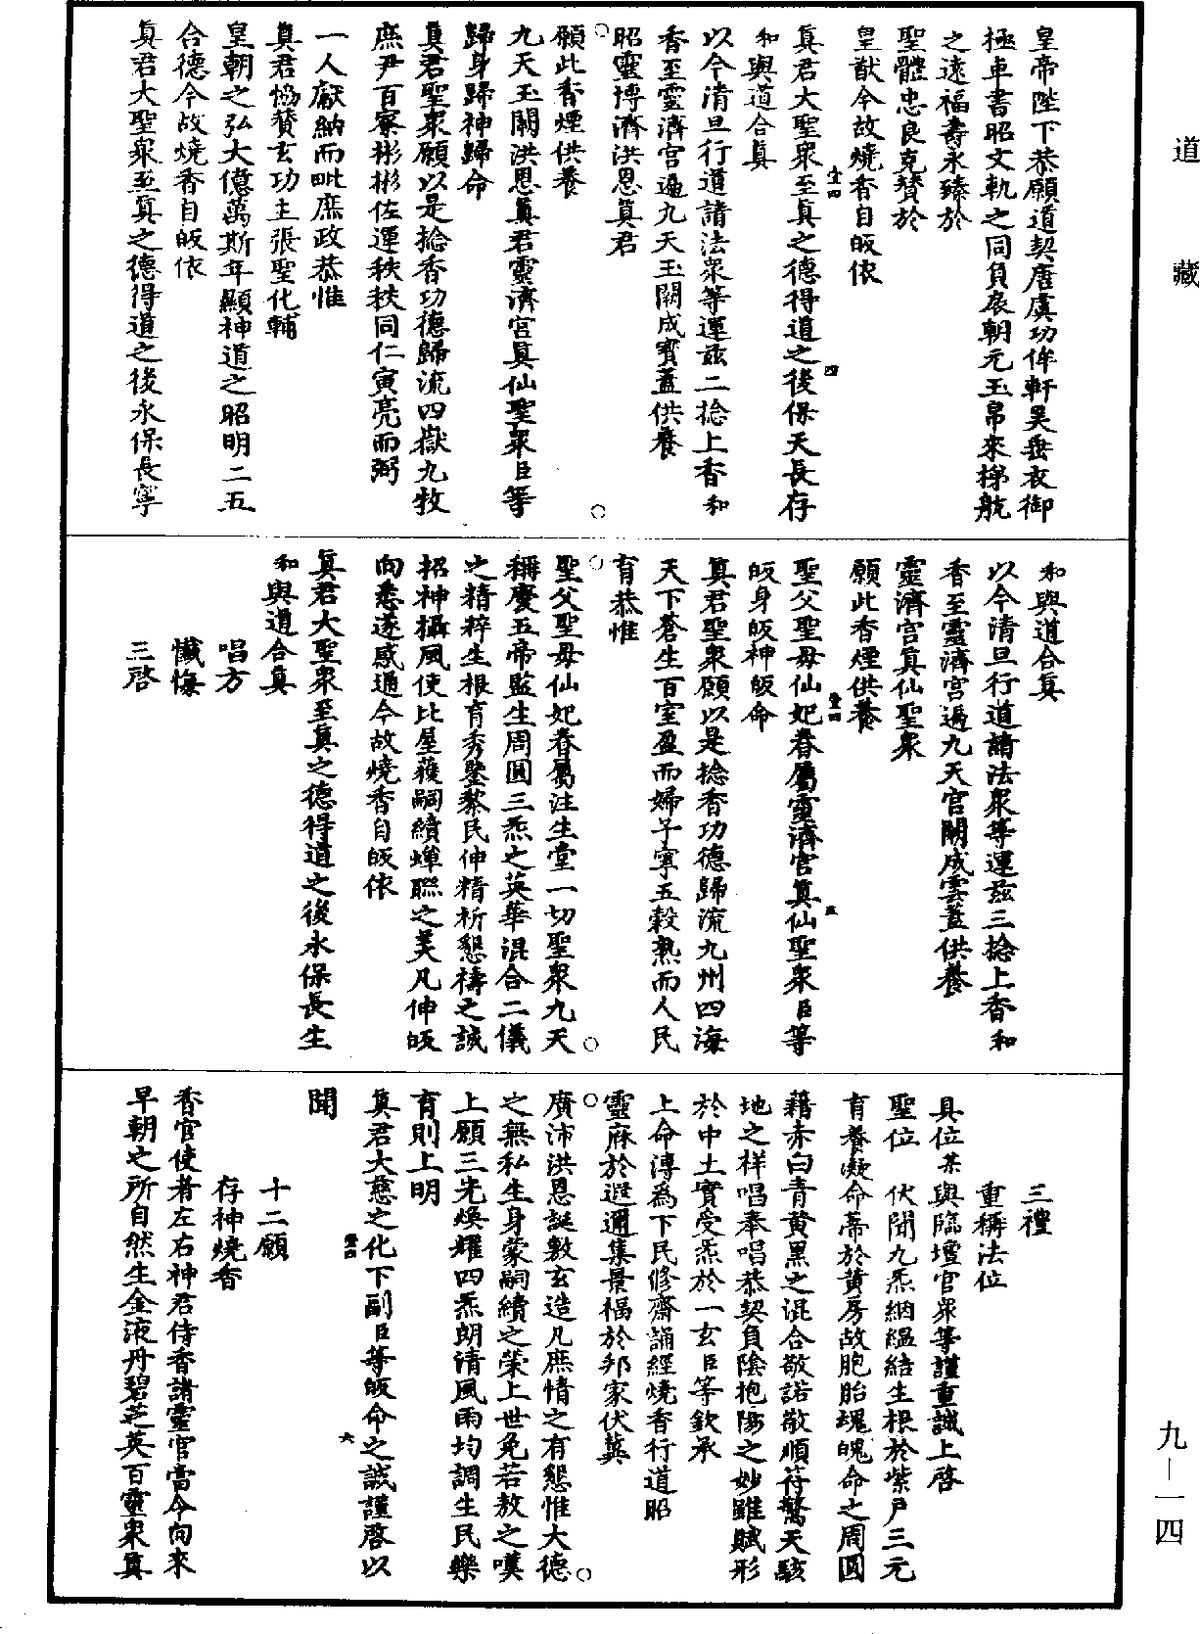 道藏
皇帝陛下恭願道契唐虞功侔軒昊垂衣御
極車書昭文軌之同負扆朝元玉帛來梯航
之遠福壽永臻於
聖體忠良克贊於
皇猷今故燒香自皈依
真君大聖衆至真之德得道之後保天長存
和與道合真
以今清旦行道請法衆等運茲二捻上香和
香至靈濟宮遍九天玉闕成寶蓋供養
昭靈博濟洪恩真君
願此香煙供養
九天玉闕洪恩真君靈濟宮真仙聖衆臣等
歸身歸神歸命
真君聖衆願以是捻香功德歸流四嶽九牧
庶尹百寮彬彬佐運秩秩同仁寅亮而弼
一人獻納而毗庶政恭惟
真君協贊玄功主張聖化輔
皇朝之弘大億萬斯年顯神道之昭明二五
合德今故燒香自皈依
真君大聖衆至真之德得道之後永保長寧
和與道合真
以今清旦行道請法衆等運茲三捻上香和
香至靈濟宮遍九天官闕成雲蓋供養
靈濟宫真仙聖衆
願此香煙供養
聖父聖毋仙妃眷屬靈濟宮真仙聖衆臣等
皈身皈神皈命
真君聖衆願以是捻香功德歸流九州四海
天下蒼生百室盈而婦子寧五穀熟而人民
育恭惟
聖父聖毋仙妃眷屬注生堂一切聖衆九天
稱慶五帝監生周圓三炁之英華混合二儀
之精粹生根育秀鑒黎民伸精祈懇禱之誠
招神攝風使比屋獲嗣續蟬聯之美凡伸皈
向悉遂感通今故燒香自皈依
真君大聖衆至真之德得道之後永保長生
和與道合真
唱方
懺悔
三啓
三禮
重稱法位
具位某與臨壇官衆等謹重誠上啓
聖位 伏聞九炁網緼結生根於紫戶三元
育養凝命蒂於黄房故胞胎魂魄命之周圓
藉赤白青黄黑之混合敬諾敬順符驚天駭
地之祥唱奉唱恭契負陰抱陽之妙雖賦形
於中土實受炁於一玄臣等欽承
上命漙為下民修齋誦經燒香行道昭
靈庥於遐邇集景福於邦家伏冀
廣沛洪恩誕敷玄造凡庶情之有懇惟大德
之無私生身蒙嗣續之榮上世免若敖之嘆
上願三光煥耀四炁朗清風雨均調生民樂
育則上明
真君大慈之化下副臣等皈命之誠謹啓以
聞
十二願
存神燒香
香官使者左右神君侍香諸靈官當今向來
早朝之所自然生金液丹碧芝英百靈衆真
九一一四